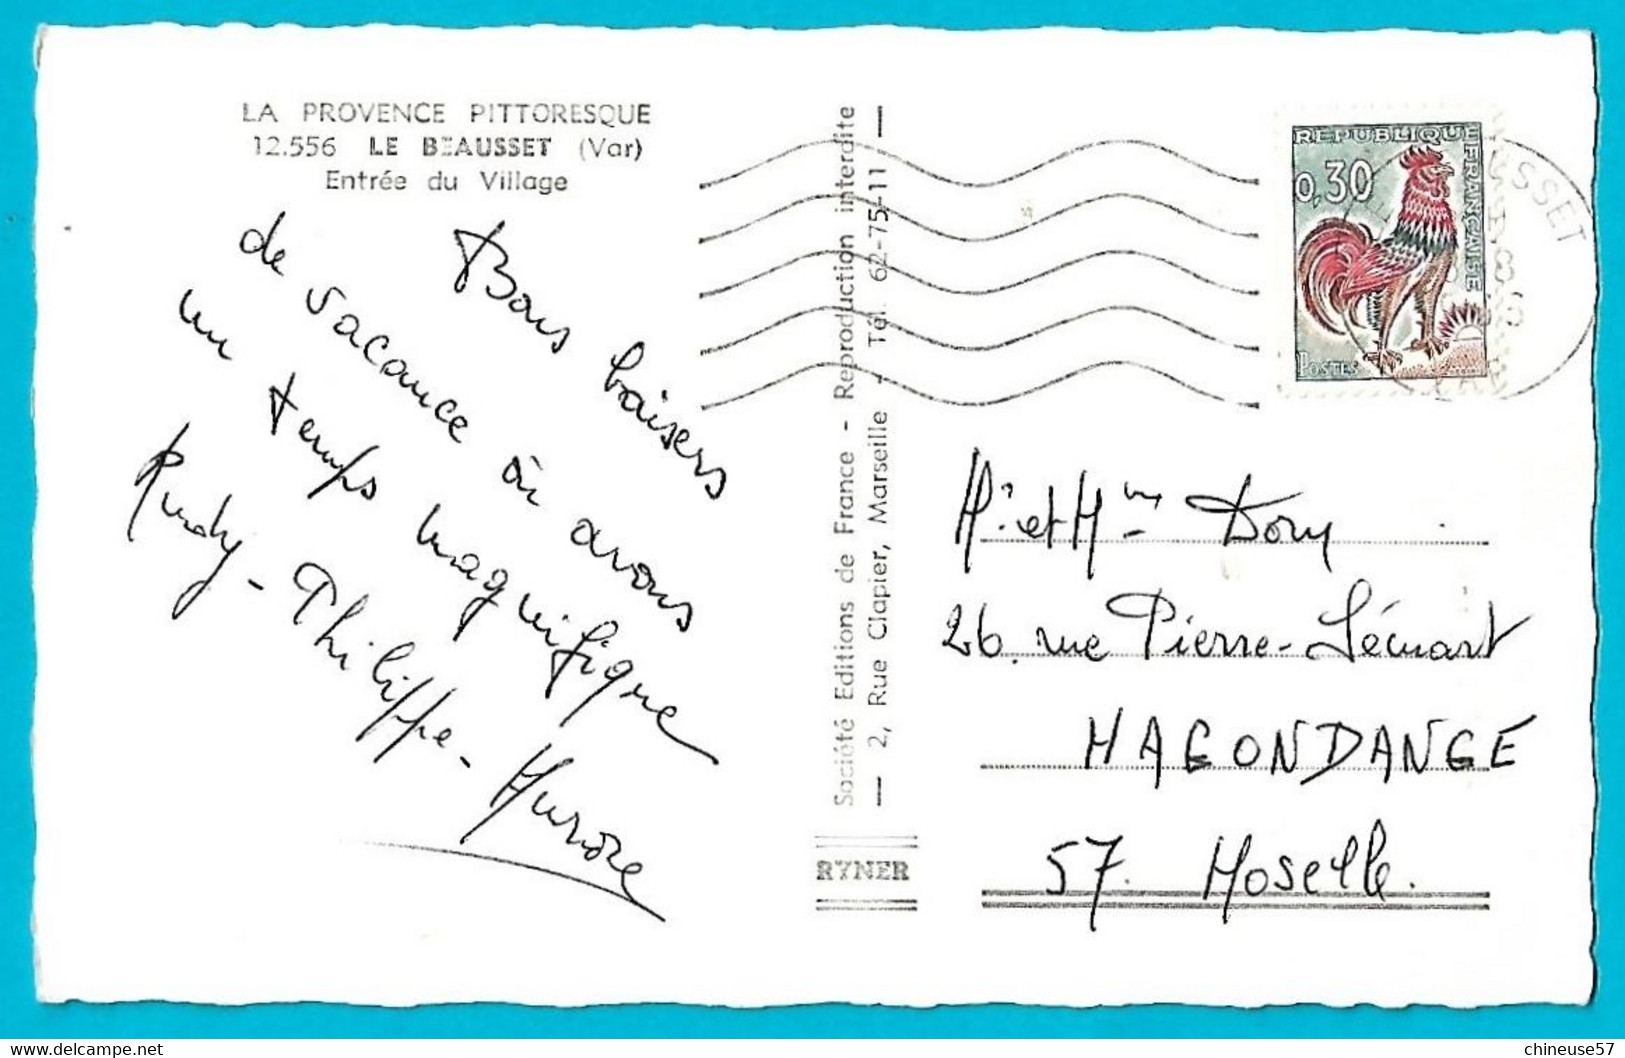 LA PROVENCE PITTORESQUE
12.556 LE BEAUSSET (Var)
Entrée du Village
Bons baisers
de vacance où avons
un temps magnifique
Rudy - Philippe - Aurore
Société Editions de France - Reproduction interdite
— 2, Rue Clapier, Marseille - Tél. 62-75-11 —
RYNER
REPUBLIQUE FRANÇAISE
0,30
POSTES
USSET
Mr et Mme Dony
26. rue Pierre-Sémart
HAGONDANGE
57. Moselle.
chineuse57